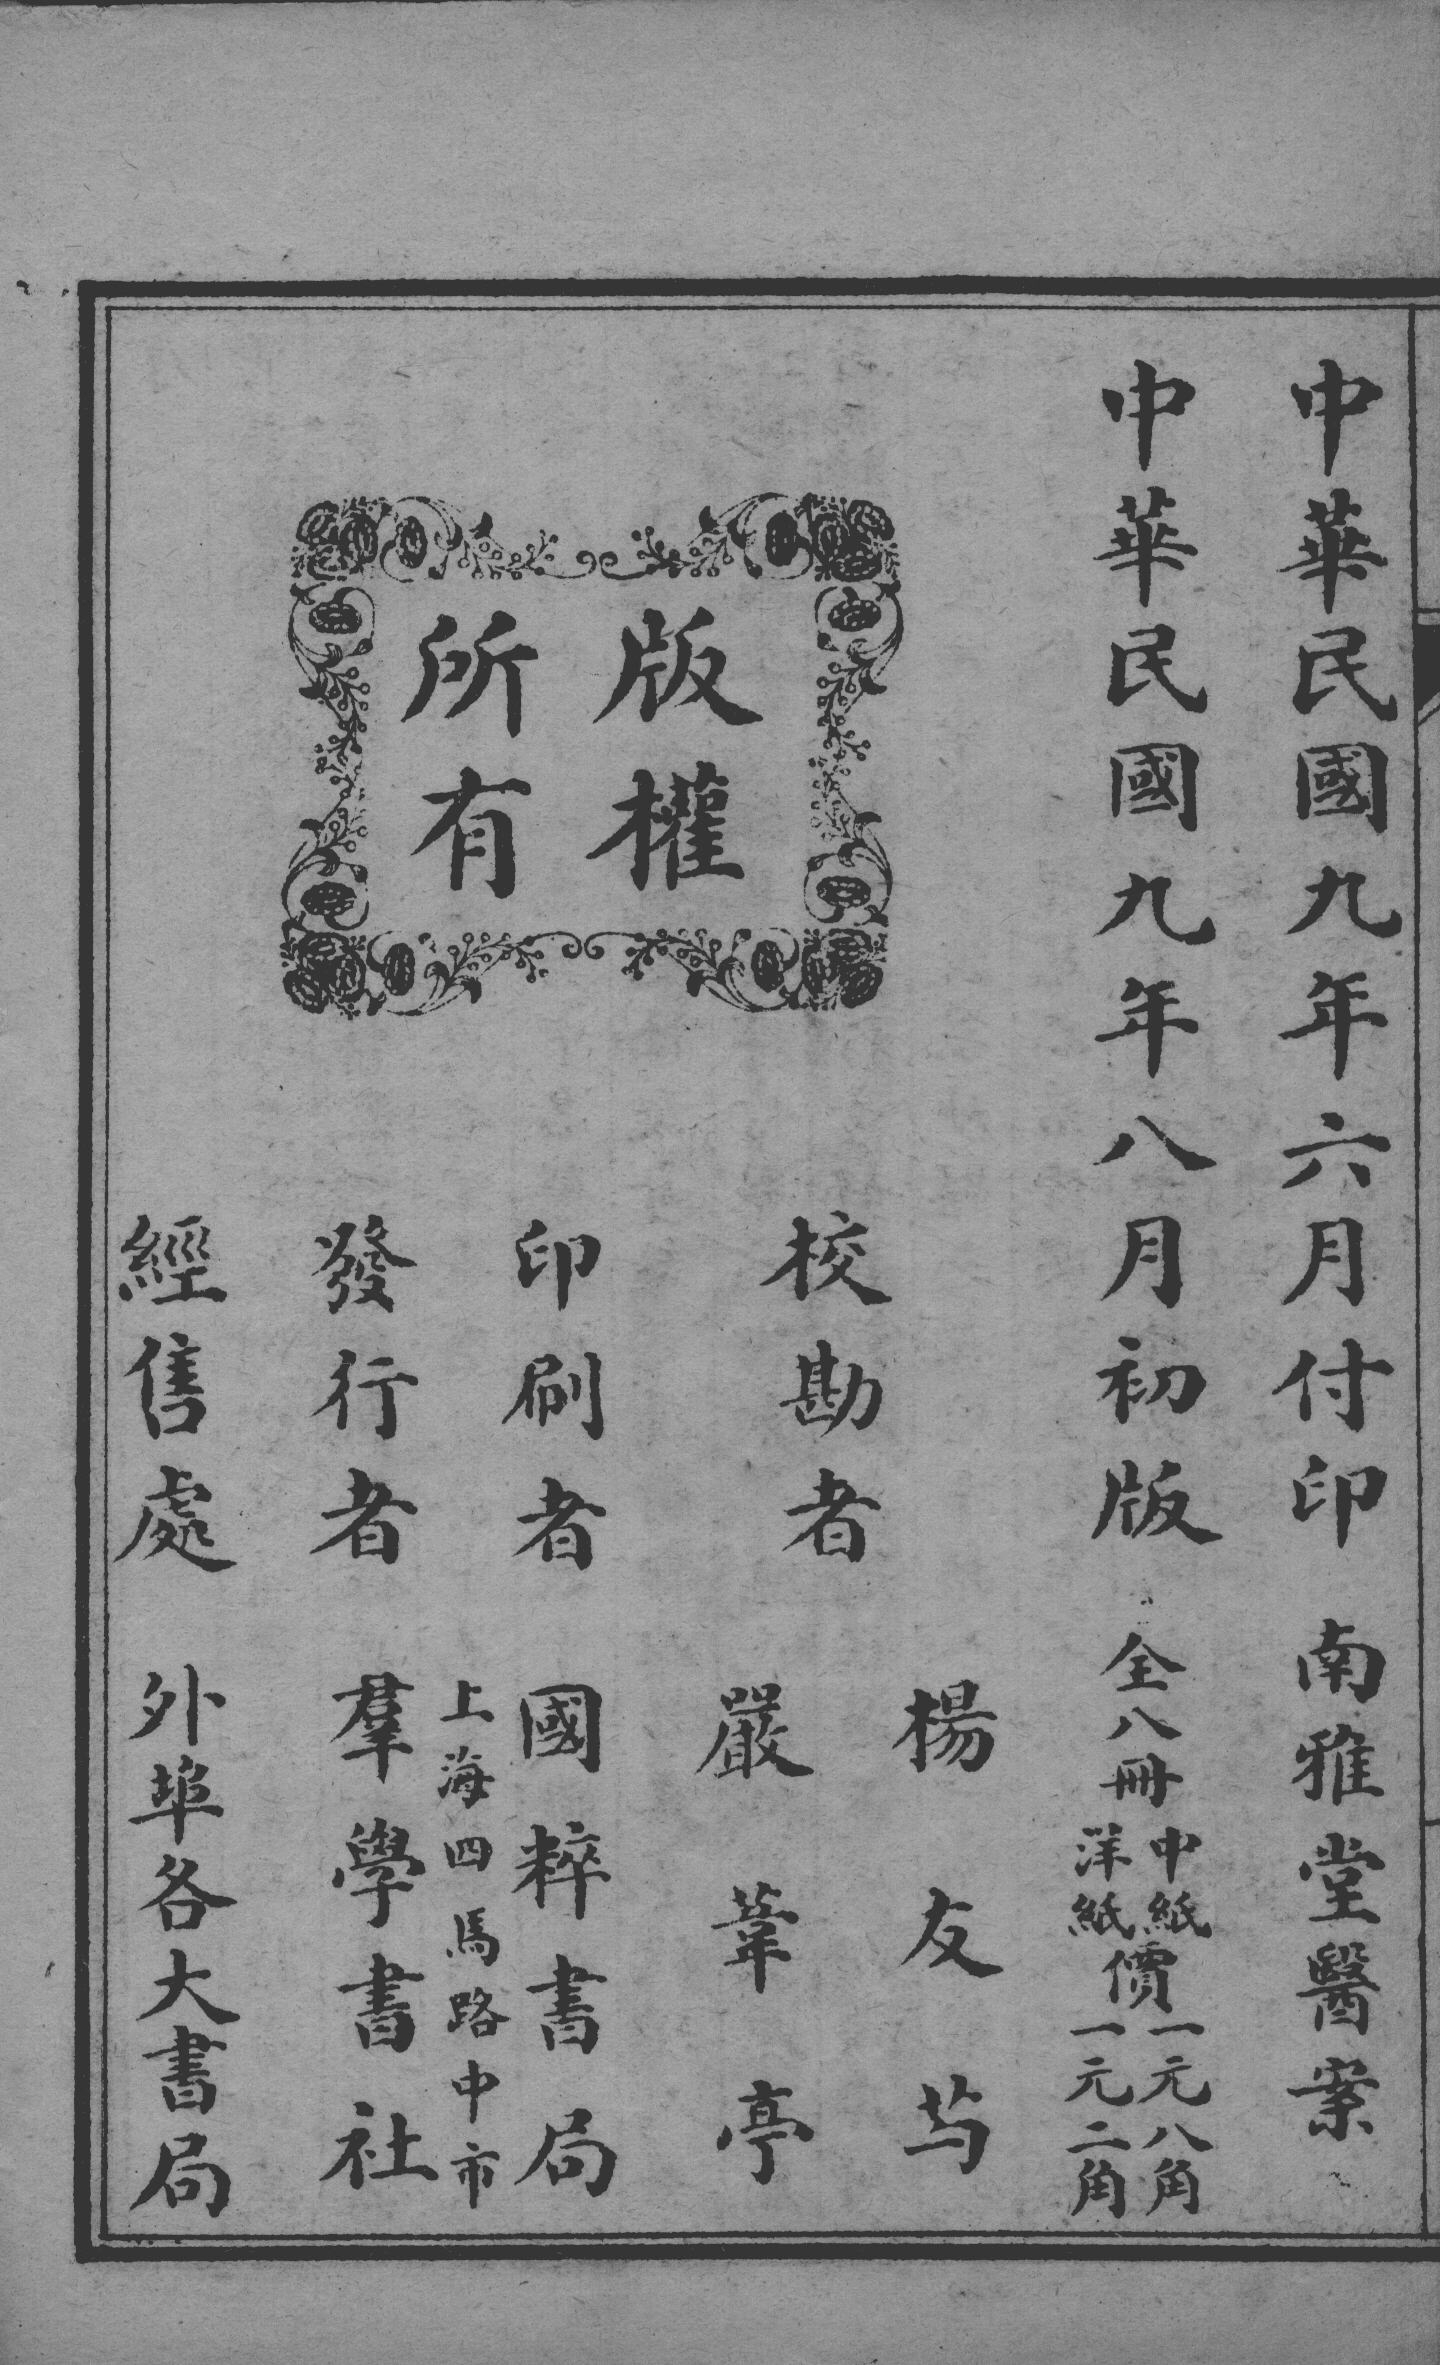 中華民國九年六月付印
南雅堂醫案
中華民國九年八月初版
全八冊
中紙
洋紙
價
一元八角
一元二角
版權
所有
校勘者
楊友芍
嚴葦亭
印刷者
國粹書局
上海四馬路中市
發行者
羣學書社
經售處
外埠各大書局